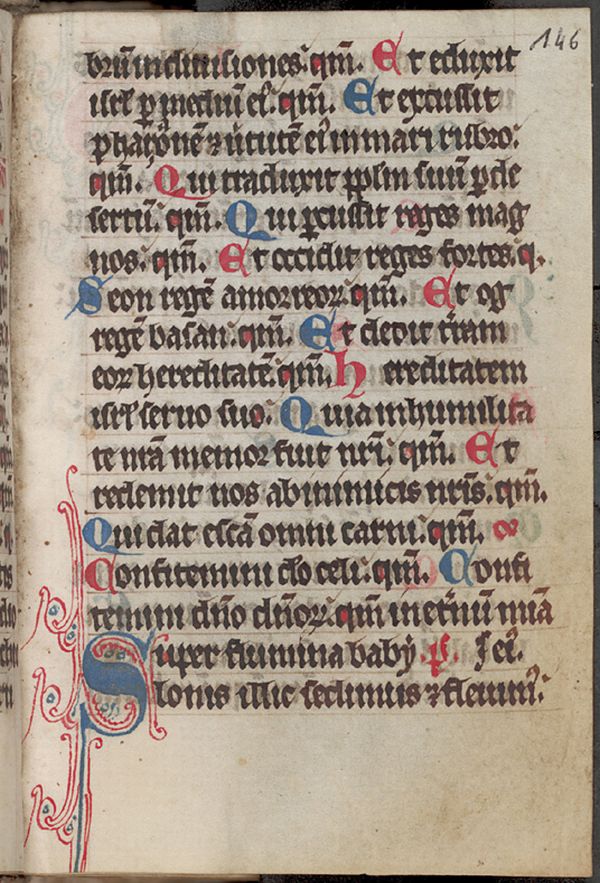 146
brū indiuisiones. qm̄. Et eduxit
isrl̄ p̱ mediū eī. qm̄. Et excussit
pharaonē ⁊ uirtutē eiꝰ in mari rubro.
qm̄. Qui traduxit pplm suū ꝑ de
sertū. qm̄. Qui ꝑcussit reges mag
nos. qm̄. Et occidit reges fortes. q.
Seon regē amorreoꝝ. qm̄. Et og
regē basan. qm̄. Et dedit t̄ram
eoꝝ hereditatē. qm̄. Hereditatem
isrl̄ seruo suo. Quia in humilita
te nr̄a memor fuit nr̄i. qm̄. Et
redemit nos ab inimicis nr̄is. qm̄.
Qui dat escā omni carni. qm̄.
Confitemini d̄o celi. qm̄. Confi
temini dn̄o dn̄oꝝ. qm̄ in et̄nū mīa
Super flumina baby. p̄s. Jeꝛ.
lonis illic sedimus ⁊ fleuimꝰ.